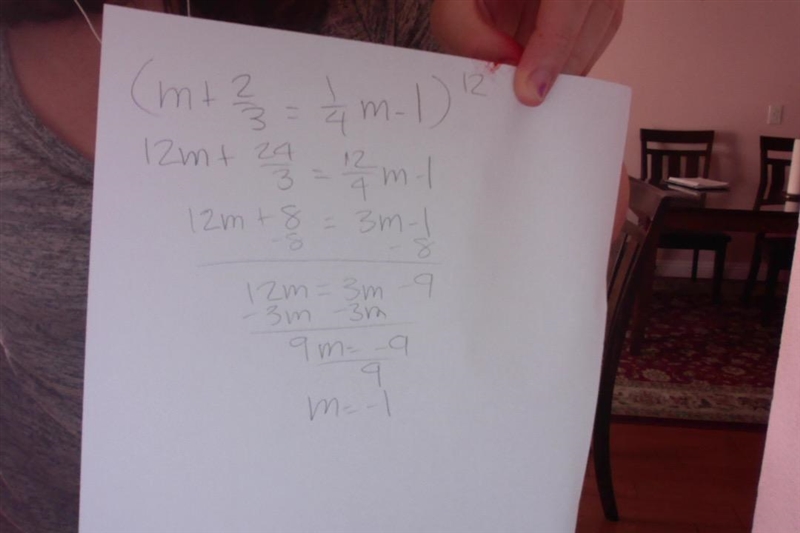 (m + 2/3 = 1/4 m - 1) 12
12m + 24/3 = 12/4 m - 1
12m + 8 = 3m - 1
-8 - 8
12m = 3m - 9
-3m -3m
9m = -9
9
m = -1